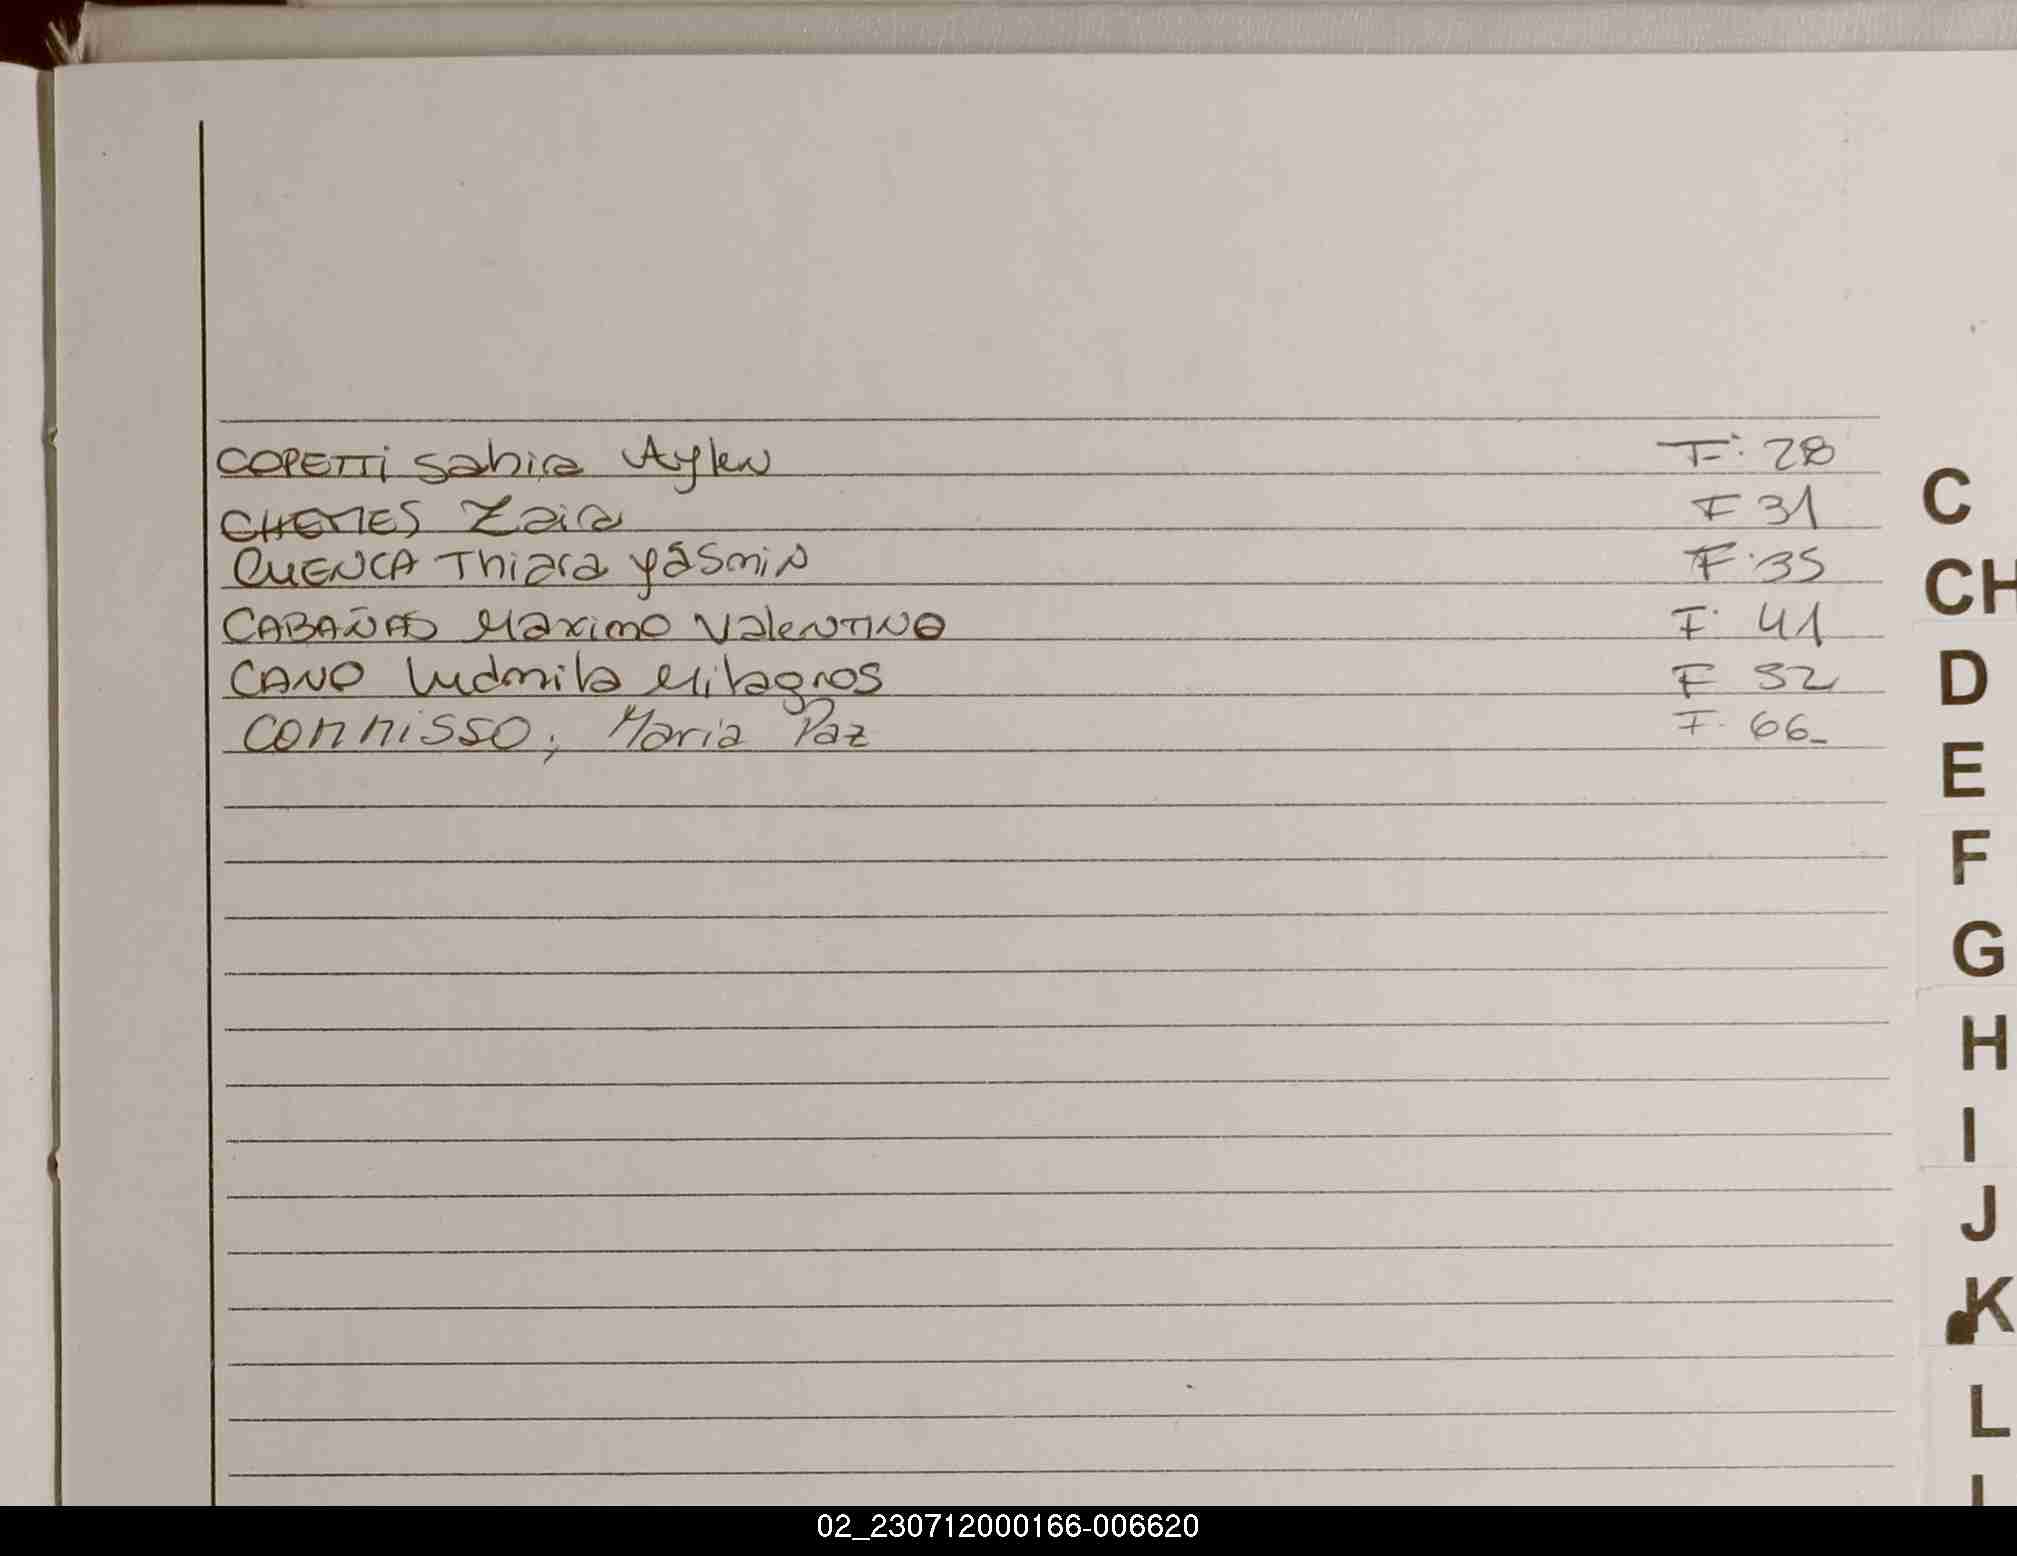 COPETTi Sahira Aylen F: 28
CHEMES Zaira F 31
CUENCA Thiara yásmin F. 35
CABAÑAS Maximo ValenTINO F. 41
CANO Ludmila Milagros F 52
Connisso, Maria Paz F. 66_
C
CH
D
E
F
G
H
I
J
K
L
02_230712000166-006620